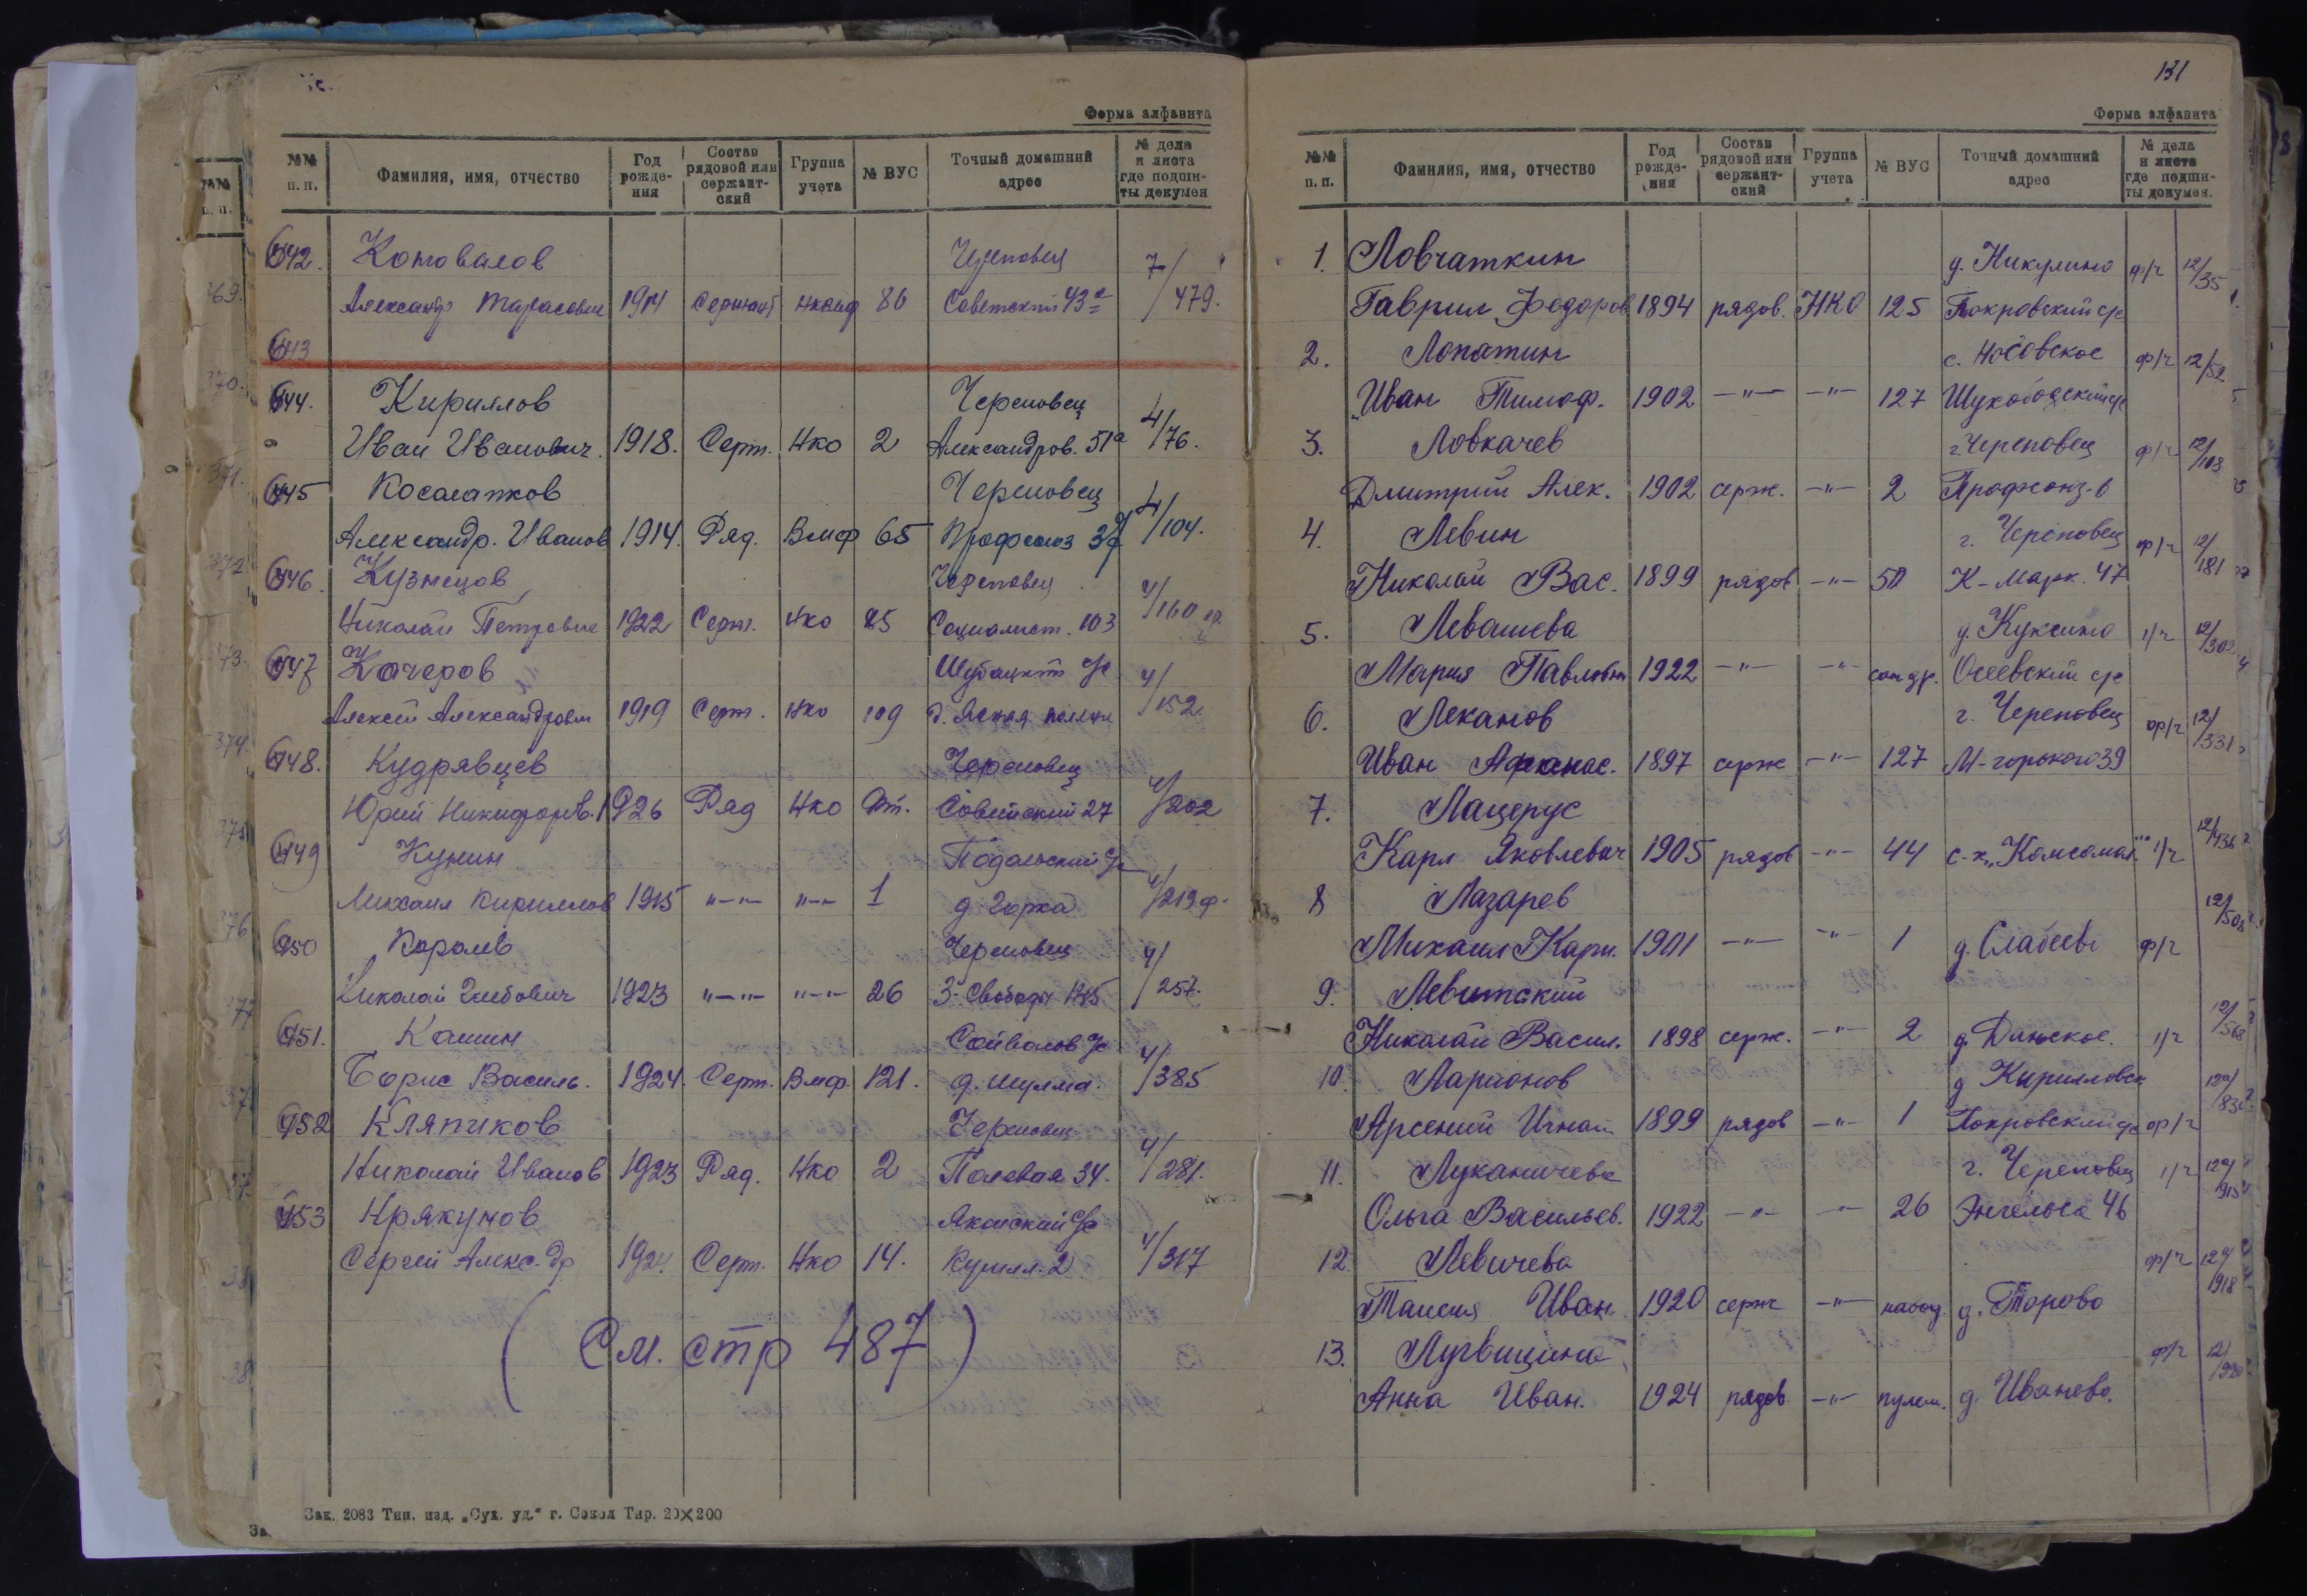 Форма алфавита
№№ п. п. Фамилия, имя, отчество Год рождения Состав рядовой или сержантский Группа учета № ВУС Точный домашний адрес № дела и листа где подшиты докумен
642. Коновалов Череповец 7/
Александр Тарасович 1914 Сержант 80 Советский 43а 479.
643
644. Кириллов Череповец 4/
Иван Иванович. 1918. Серж. Нко 2 Александров. 51а 76.
645 Косолапков Череповец 4/
Александр. Иванов 1914. Ряд. Вмф 65 Профсоюз 104.
646. Кузнецов Череповец 4/
Николай Петрович 1922 Серж. Нко 25 Социалист. 103 160
647 Кочеров с/с 4/
Алексей Александрович 1919 Серж. Нко 109 д. Ясная поляна 152
648. Кудрявцев Череповец 4/
Юрий Никифоров. 1926 Ряд Нко Советский 27 202
649 Кунин Подольский с/с 4/
Михаил Кириллов 1915 "-" "-" 1 д. Горка 219
650 Королев Череповец 4/
Николай Глебович 1923 "-" "-" 26 257.
651. Кашин с/с 4/
Борис Василь. 1924. Серж. Вмф 121. д. Шулма. 385
652 Кляпиков Череповец 4/
Николай Иванов 1923 Ряд. Нко 2 Полевая 34. 281.
653 с/с 4/
Сергей Алекс-др 1924. Серж. Нко 14. 317
(См. стр 487)
Зак. 2083 Тип. изд. „Сух. уд." г. Сокол Тир. 20×200
131
Форма алфавита
№№ п. п. Фамилия, имя, отчество Год рождения Состав рядовой или сержантский Группа учета № ВУС Точный домашний адрес № дела и листа где подшиты докумен.
1. Ловчаткин д. Никулино ф/г 12/35
Гаврил Федоров 1894 рядов. НКО 125 Покровский с/с
2. Лопатин с. Носовское ф/г 12/52
Иван Тимоф. 1902 -"- -"- 127 Шухободский с/с
3. Ловкачев г. Череповец ф/г 12/108
Дмитрий Алек. 1902 серж. -"- 2 Профсоюз-6
4. Левин г. Череповец ф/г 12/181
Николай Вас. 1899 рядов -"- 50 К-Марк. 47
5. Левашева д. Куксино 1/г 12/302
Мария Павловн 1922 -"- -"- сан др. Осеевский с/с
6. Леканов г. Череповец ф/г 12/331
Иван Афанас. 1897 серж -"- 127 М-горького 39
7. Лацерус
Карл Яковлевич 1905 рядов -"- 44 с-х „Комсомол" 1/г 12/436
8 Лазарев 12/508
Михаил Карп. 1901 -"- -"- 1 ф/г
9. Левитский 12/568
Николай Васил. 1898 серж. -"- 2 д. Данское. 1/г
10. Ларионов д Кирилловск
Арсений Игнат 1899 рядов -"- 1 Покровский с/с ф/г
11. Луканичева г. Череповец 1/г
Ольга Васильев. 1922 -"- -"- 26 Энгельса 46
12 Левичева ф/г
Таисия Иван. 1920 серж -"- навод. д. Торово
13. ф/г
Анна Иван. 1924 рядов -"- пулем. д. Иванево.